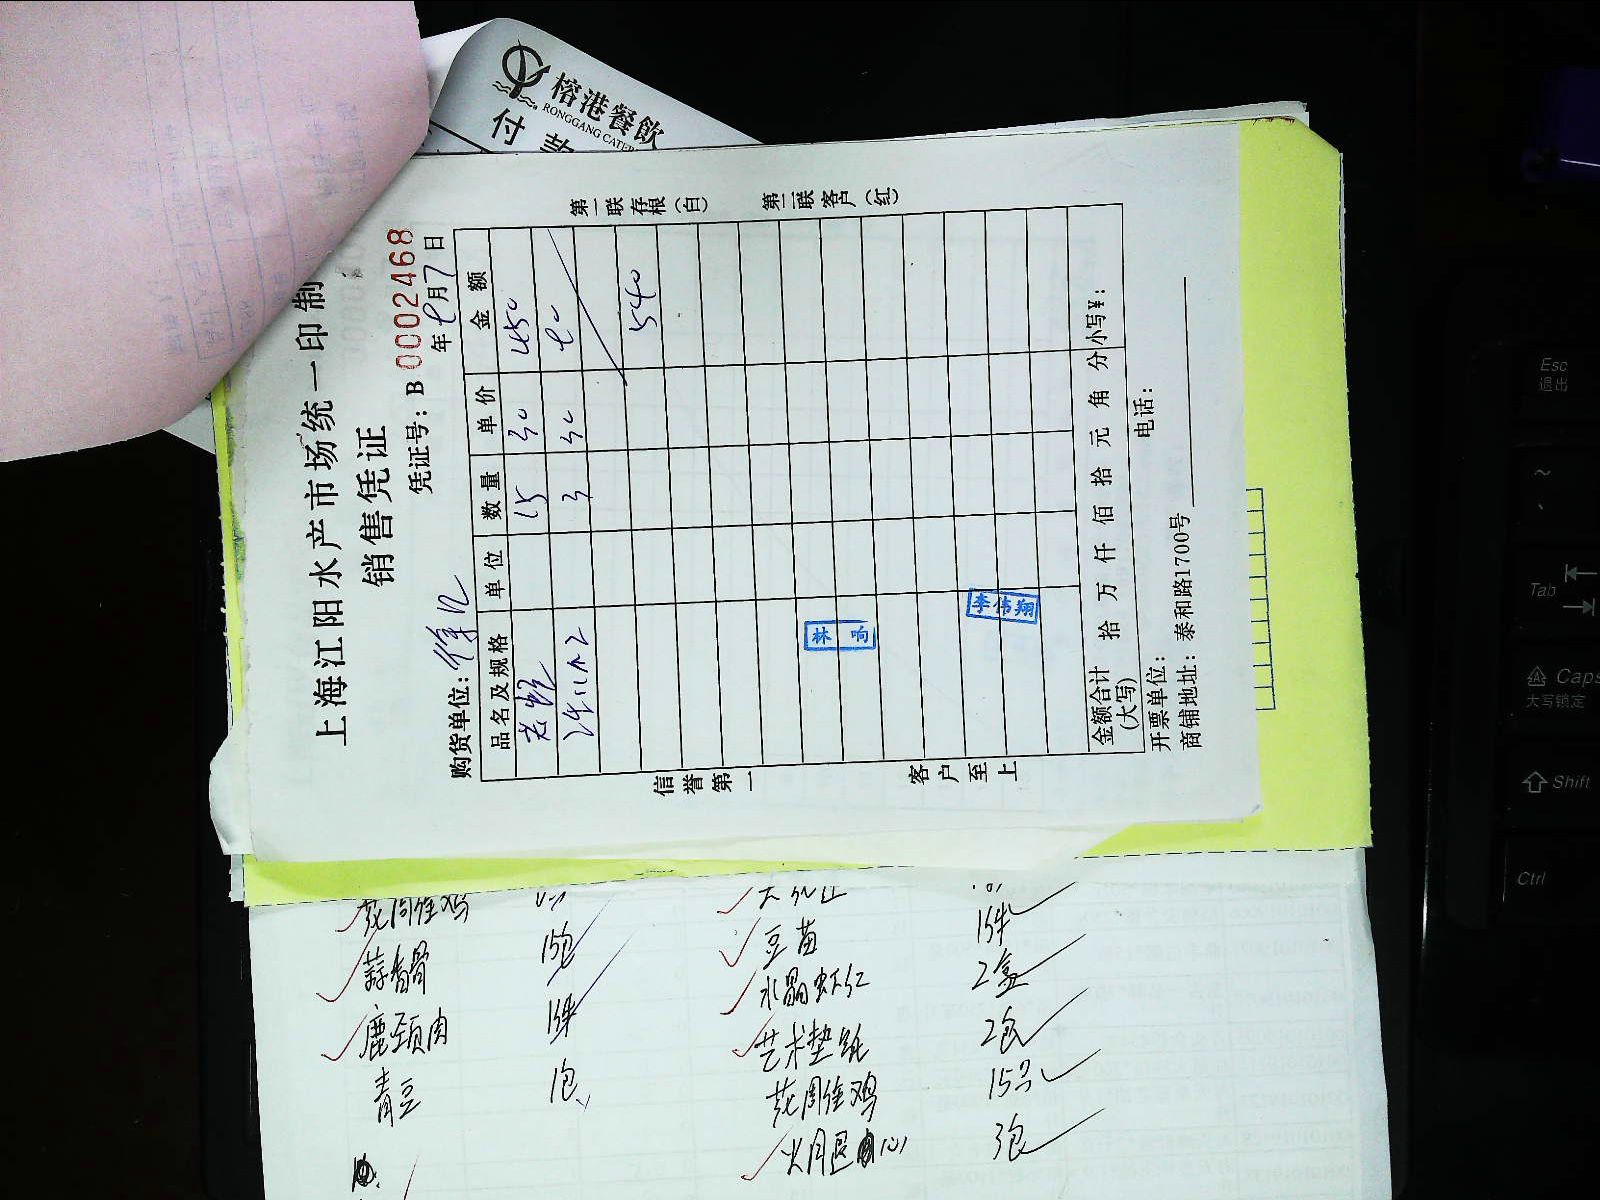 榕港餐飲
RONGGANG CATER
付款
上海江阳水产市场统一印制
销售凭证
凭证号：B 0002468
购货单位： 年 7月7日
品名及规格 单位 数量 单价 金额
15 30 450
3 30 90
540
第一联存根（白） 第二联客户（红）
信誉第一 客户至上
林响
李伟翔
金额合计(大写) 拾 万 仟 佰 拾 元 角 分 小写¥：
开票单位： 电话：
商铺地址：泰和路1700号
蒜香骨 1包
鹿颈肉 1件
青豆 1包
豆苗 1件
水晶虾仁 2盒
艺术垫纸 2包
花周佳鸡 15只
3包
Esc
退出
Tab
Caps
大写锁定
Shift
Ctrl